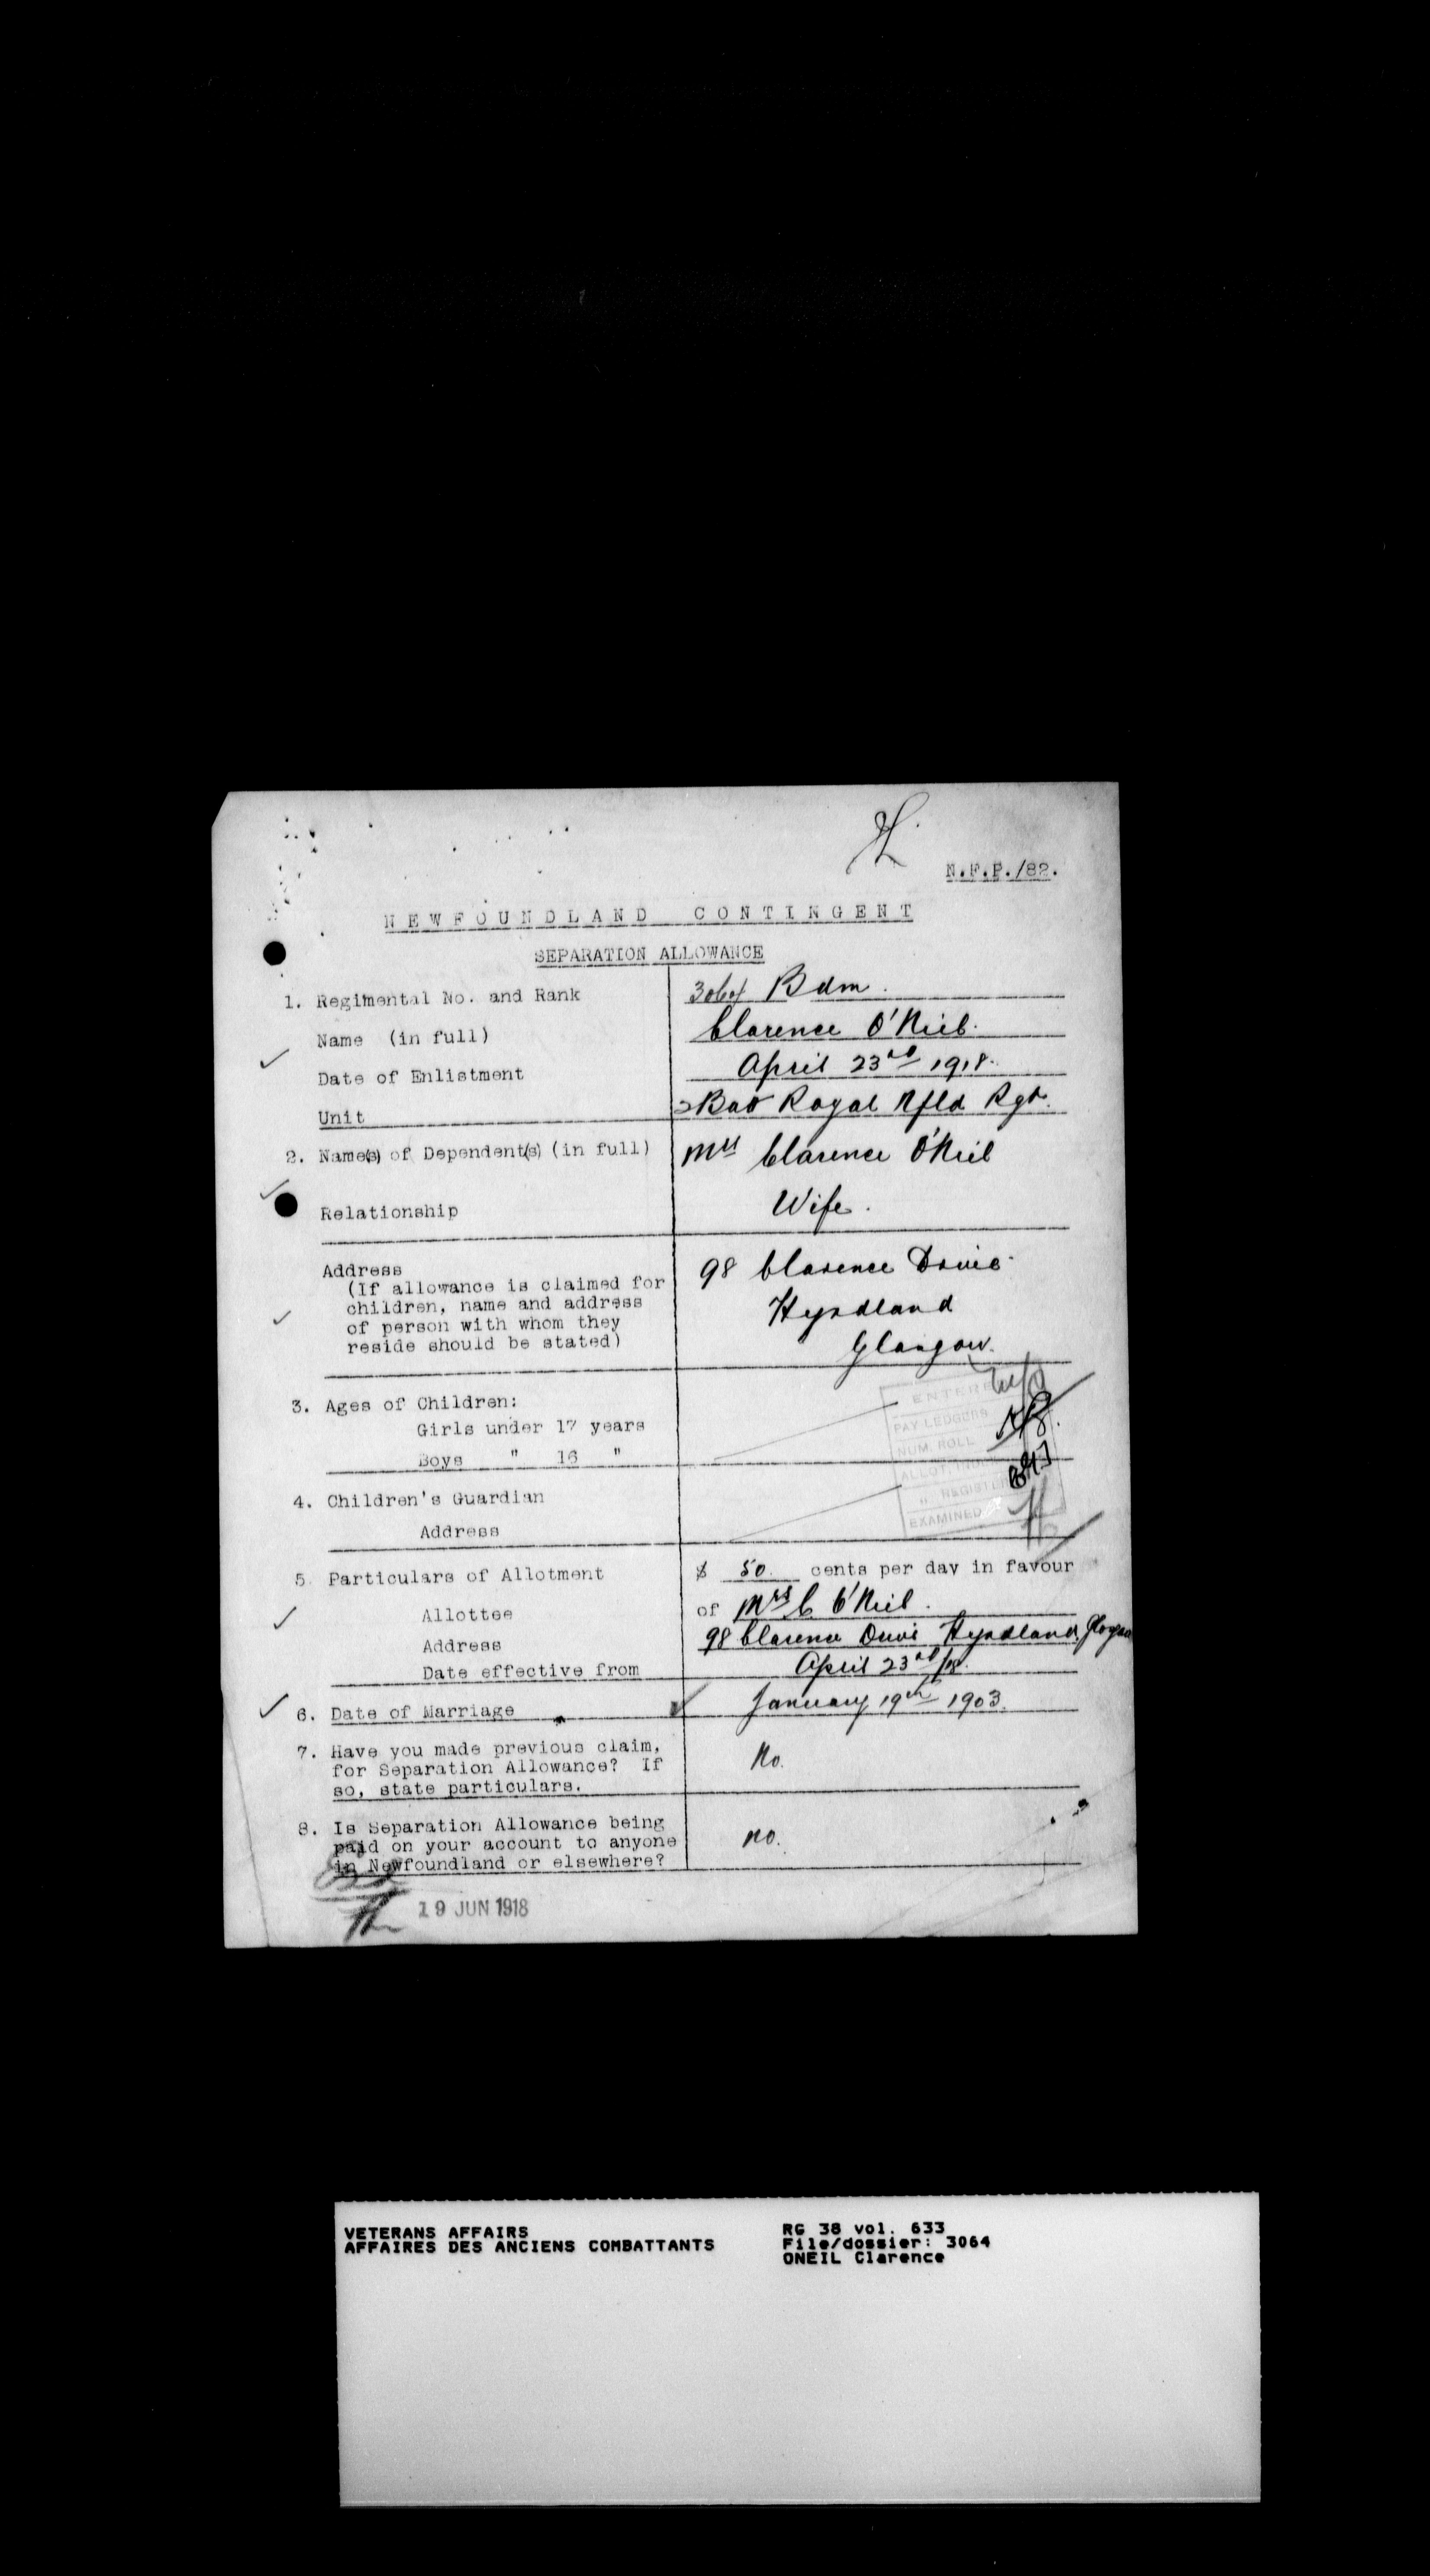 N.F.P./82.
NEWFOUNDLAND CONTINGENT
SEPARATION ALLOWANCE
1. Regimental No. and Rank 3064 Bdm.
Name (in full) Clarence O'Neil.
Date of Enlistment April 23rd 1918.
Unit 2 Bat Royal Nfld Rgt.
2. Name(s) of Dependent(s) (in full) Mrs Clarence O'Neil
Relationship Wife.
Address 98 Clarence Drive
(If allowance is claimed for
children, name and address Hyndland
of person with whom they
reside should be stated) Glasgow.
3. Ages of Children:
Girls under 17 years
Boys " 16 "
ENTERED
PAY LEDGERS
NUM. ROLL
ALLOT. INDEX
" REGISTER
EXAMINED
4. Children's Guardian
Address
5. Particulars of Allotment $ 50. cents per day in favour
Allottee of Mrs C O'Neil.
Address 98 Clarence Drive Hyndland, Glasgow
Date effective from April 23rd/18.
6. Date of Marriage January 19th 1903.
7. Have you made previous claim, No.
for Separation Allowance? If
so, state particulars.
8. Is Separation Allowance being
paid on your account to anyone no.
in Newfoundland or elsewhere?
19 JUN 1918
VETERANS AFFAIRS RG 38 vol. 633
AFFAIRES DES ANCIENS COMBATTANTS File/dossier: 3064
ONEIL Clarence